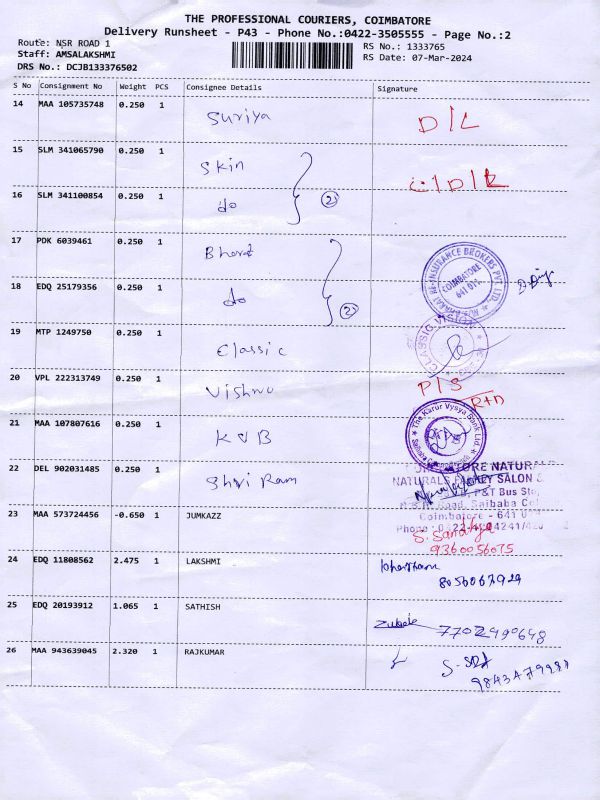 THE PROFESSIONAL COURIERS, COIMBATORE
Delivery Runsheet - P43 - Phone No.:0422-3505555 - Page No.:2
Route: NSR ROAD 1
RS No.: 1333765
Staff: AMSALAKSHMI
RS Date: 07-Mar-2024
DRS No.: DCJB133376502
S No Consignment No Weight PCS Consignee Details Signature
14 MAA 105735748 0.250 1 Suriya D/L
15 SLM 341065790 0.250 1 Skin
16 SLM 341100854 0.250 1 do (2)
17 PDK 6039461 0.250 1 Bharat
18 EDQ 25179356 0.250 1 do (2)
RE-INSURANCE BROKERS PVT. LTD.
COIMBATORE
641 011
19 MTP 1249750 0.250 1 Classic
CLASSIC
20 VPL 222313749 0.250 1 Vishnu P/S
R+D
21 MAA 107807616 0.250 1 KVB
The Karur Vysya Bank Ltd.
22 DEL 902031485 0.250 1 Shri Ram
NATURALS FAMILY SALON &
P&T Bus Sto
Road, Saibaba Col
Coimbatore - 641
Phone :
23 MAA 573724456 -0.650 1 JUMKAZZ
S. Sandhya
9360056075
24 EDQ 11808562 2.475 1 LAKSHMI
8056067929
25 EDQ 20193912 1.065 1 SATHISH
7702490648
26 MAA 943639045 2.320 1 RAJKUMAR